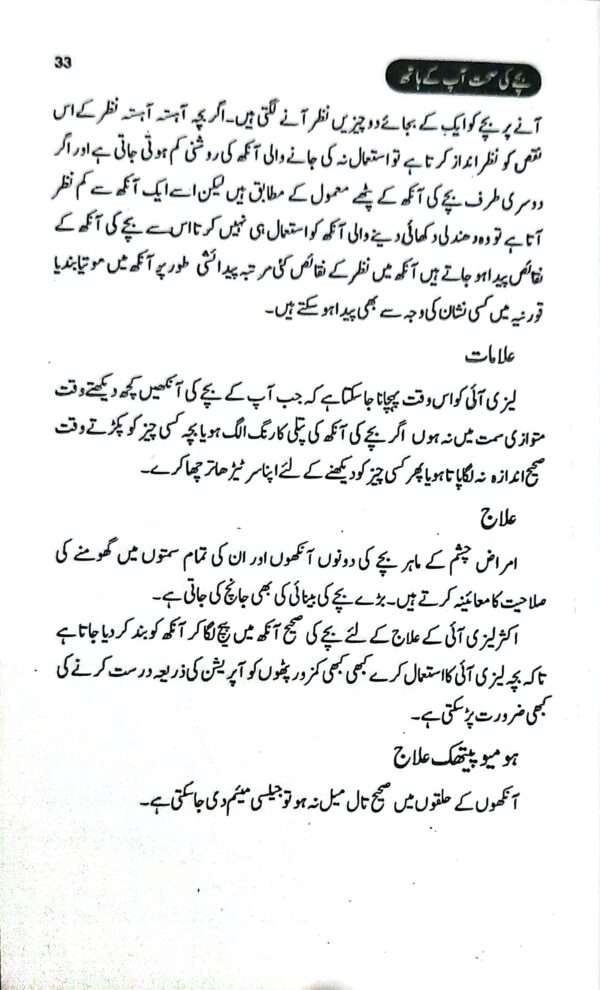 33
بچے کی صحت آپ کے ہاتھ
آنے پر بچے کو ایک کے بجائے دو چیزیں نظر آنے لگتی ہیں۔ اگر بچہ آہستہ آہستہ نظر کے اس
نقص کو نظر انداز کرتا ہے تو استعمال نہ کی جانے والی آنکھ کی روشنی کم ہوتی جاتی ہے اور اگر
دوسری طرف بچے کی آنکھ کے پٹھے معمول کے مطابق ہیں لیکن اسے ایک آنکھ سے کم نظر
آتا ہے تو وہ دھندلی دکھائی دینے والی آنکھ کو استعمال ہی نہیں کرتا اس سے بچے کی آنکھ کے
نقائص پیدا ہو جاتے ہیں آنکھ میں نظر کے نقائص کئی مرتبہ پیدائشی طور پر آنکھ میں موتیا بند یا
قورنیہ میں کسی نشان کی وجہ سے بھی پیدا ہو سکتے ہیں۔
علامات
لیزی آئی کو اس وقت پہچانا جا سکتا ہے کہ جب آپ کے بچے کی آنکھیں کچھ دیکھتے وقت
متوازی سمت میں نہ ہوں اگر بچے کی آنکھ کی پتلی کا رنگ الگ ہو یا بچہ کسی چیز کو پکڑتے وقت
صحیح اندازہ نہ لگا پاتا ہو یا پھر کسی چیز کو دیکھنے کے لئے اپنا سر ٹیڑھا ترچھا کرے۔
علاج
امراض چشم کے ماہر بچے کی دونوں آنکھوں اور ان کی تمام سمتوں میں گھومنے کی
صلاحیت کا معائینہ کرتے ہیں۔ بڑے بچے کی بینائی کی بھی جانچ کی جاتی ہے۔
اکثر لیزی آئی کے علاج کے لئے بچے کی صحیح آنکھ میں پیچ لگا کر آنکھ کو بند کر دیا جاتا ہے
تاکہ بچہ لیزی آئی کا استعمال کرے کبھی کبھی کمزور پٹھوں کو آپریشن کی ذریعہ درست کرنے کی
بھی ضرورت پڑ سکتی ہے۔
ہومیوپیتھک علاج
آنکھوں کے حلقوں میں صحیح تال میل نہ ہو تو جیلسی میئم دی جا سکتی ہے۔